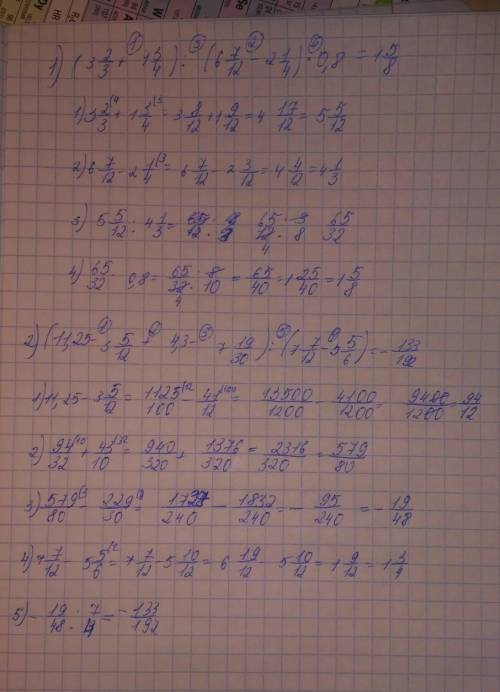 1) (3 2/3 + 1 3/4) : (6 7/12 − 2 1/4) · 0,8 = 1 5/8
1) 3 2/3 + 1 1/4 = 3 8/12 + 1 9/12 = 4 17/12 = 5 5/12
2) 6 7/12 − 2 1/4 = 6 7/12 − 2 3/12 = 4 4/12 = 4 1/3
3) 5 5/12 : 4 1/3 = 65/12 · 65/12 · 3/8 65/32
4) 65/32 0,8 = 65/32 · 8/10 = 65/40 = 1 25/40 = 1 5/8
2) (11,25 − 3 5/12 + 4,3 − 7 19/30) : (7 7/12 − 5 5/6) = − 133/192
1) 11,25 − 3 5/12 = 1125/100 − 41/12 = 13500/1200 − 4100/1200 = 9400/1200 = 94/12
2) 94/32 + 43/10 = 940/320 + 1376/320 = 2316/320 = 579/80
3) 579/80 − 229/30 = 1737/240 − 1832/240 = − 95/240 = − 19/48
4) 7 7/12 − 5 5/6 = 7 7/12 − 5 10/12 = 6 19/12 − 5 10/12 = 1 9/12 = 1 3/4
5) − 19/48 : 7/4 = − 133/192